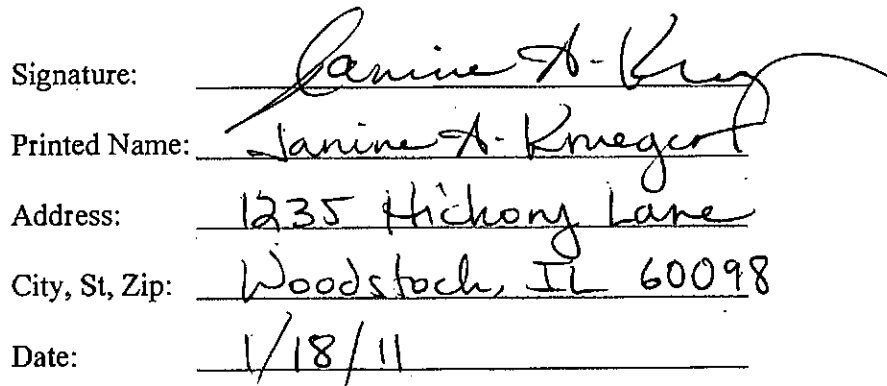 Signature: Janine A. Krueger
Printed Name: Janine A. Krueger
Address: 1235 Hickory Lane
City, St, Zip: Woodstock, IL 60098
Date: 1/18/11